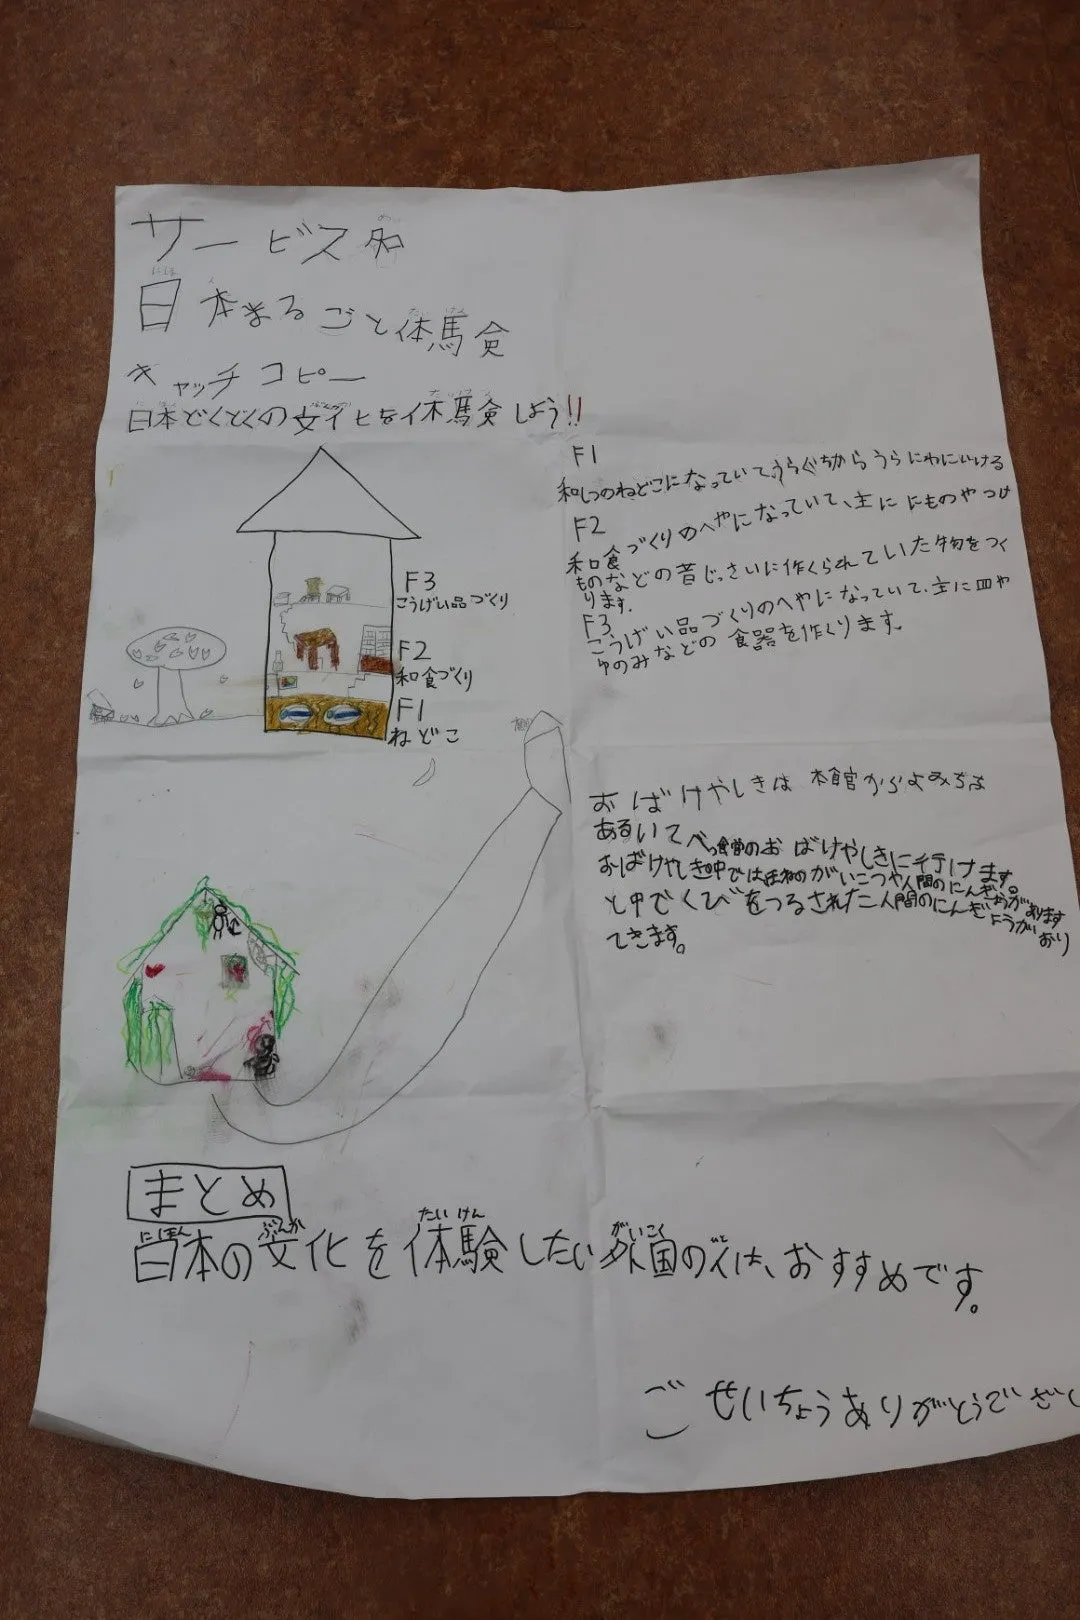 サービス名
日本まるごと体験
キャッチコピー
日本どくとくの文化を体験しよう!!
F3
こうげい品づくり
F2
和食づくり
F1
ねどこ
F1
和しつのねどこになっていて、うらぐちからうらにわにいける
F2
和食づくりのへやになっていて、主ににものやつけ
ものなどの昔じっさいに作くられていた物をつく
ります。
F3
こうげい品づくりのへやになっていて、主に皿や
ゆのみなどの食器を作くります。
おばけやしきは本館からよみちを
あるいてべっ館のおばけやしきに行けます。
おばけやしき中ではほねのがいこつや人間のにんぎょうがあります
と中でくびをつるされた人間のにんぎょうがおり
てきます。
まとめ
にほん ぶんか たいけん がいこく
日本の文化を体験したい外国の人は、おすすめです。
ごせいちょうありがとうござい